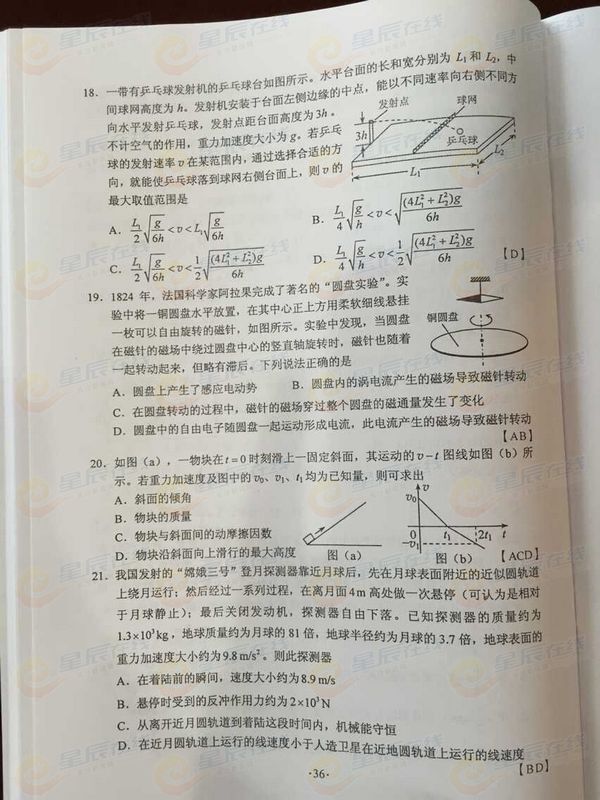 18. 一带有乒乓球发射机的乒乓球台如图所示。水平台面的长和宽分别为 L₁ 和 L₂，中
间球网高度为 h。发射机安装于台面左侧边缘的中点，能以不同速率向右侧不同方
向水平发射乒乓球，发射点距台面高度为3h。
不计空气的作用，重力加速度大小为 g。若乒乓
球的发射速率 v 在某范围内，通过选择合适的方
向，就能使乒乓球落到球网右侧台面上，则 v 的
最大取值范围是
发射点 球网
3h 乒乓球
L₁ L₂
A. L₁/2 √(g/6h) < v < L₁√(g/6h)
B. L₁/4 √(g/h) < v < √((4L₁²+L₂²)g/6h)
C. L₁/2 √(g/6h) < v < 1/2 √((4L₁²+L₂²)g/6h)
D. L₁/4 √(g/h) < v < 1/2 √((4L₁²+L₂²)g/6h)
【D】
19. 1824 年，法国科学家阿拉果完成了著名的“圆盘实验”。实
验中将一铜圆盘水平放置，在其中心正上方用柔软细线悬挂
一枚可以自由旋转的磁针，如图所示。实验中发现，当圆盘
在磁针的磁场中绕过圆盘中心的竖直轴旋转时，磁针也随着
一起转动起来，但略有滞后。下列说法正确的是
铜圆盘
A. 圆盘上产生了感应电动势 B. 圆盘内的涡电流产生的磁场导致磁针转动
C. 在圆盘转动的过程中，磁针的磁场穿过整个圆盘的磁通量发生了变化
D. 圆盘中的自由电子随圆盘一起运动形成电流，此电流产生的磁场导致磁针转动
【AB】
20. 如图（a），一物块在 t=0 时刻滑上一固定斜面，其运动的 v－t 图线如图（b）所
示。若重力加速度及图中的 v₀、v₁、t₁ 均为已知量，则可求出
A. 斜面的倾角
B. 物块的质量
C. 物块与斜面间的动摩擦因数
D. 物块沿斜面向上滑行的最大高度
v
v₀
0 t₁ 2t₁ t
-v₁
图（a） 图（b） 【ACD】
21. 我国发射的“嫦娥三号”登月探测器靠近月球后，先在月球表面附近的近似圆轨道
上绕月运行；然后经过一系列过程，在离月面4m 高处做一次悬停（可认为是相对
于月球静止）；最后关闭发动机，探测器自由下落。已知探测器的质量约为
1.3×10³kg，地球质量约为月球的 81 倍，地球半径约为月球的 3.7 倍，地球表面的
重力加速度大小约为9.8 m/s²。则此探测器
A. 在着陆前的瞬间，速度大小约为8.9 m/s
B. 悬停时受到的反冲作用力约为2×10³N
C. 从离开近月圆轨道到着陆这段时间内，机械能守恒
D. 在近月圆轨道上运行的线速度小于人造卫星在近地圆轨道上运行的线速度
【BD】
·36·
星辰在线